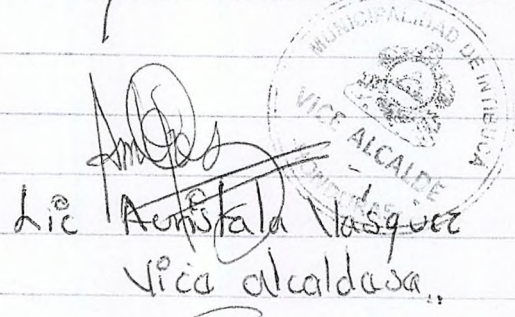 MUNICIPALIDAD DE INTIBUCA
VICE ALCALDE
HONDURAS
Lic Aenistala Vasquez
Vice alcaldasa